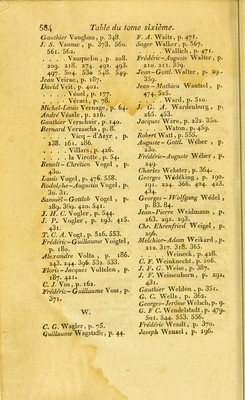 584 Table du tome sixième.
Gauthier Vaughan, p. 348.
J. S. Vaume, p. 373. 560.
561. 562.
. . . . Vauquelin, p. 208.
209. 218. 274. 492. 493.
497. 504. 530. 548. 549.
Jean Veirac, p. 187.
David Veit, p. 402.
. . . . Vénel, p. 177.
. . . . Véraci, p. 78.
Michel-Louis Vernage, p. 64.
André Vésale, p. 216.
Gauthier Verschuir, p. 140.
Bernard Verzascha, p. 8.
. . . . Vicq-d'Azyr.
138. 161. 286.
. . . . Villars, p. 426.
. . . . la Virotte, p. 54.
Benoît-Chrétien Vogel, p.
430.
Louis Vogel, p. 476. 558.
Rodolphe-Augustin Vogel, p.
30. 31.
Samuël-Gottlob Vogel, p.
289. 369. 420. 541.
J. H. C. Vogler, p. 544.
J. P. Vogler, p. 190. 415.
431.
T. C. A. Vogt, p. 516. 553.
Frédéric-Guillaume Voigtel,
p. 180.
Alexandre Volta, p. 186.
243. 244. 396. 532. 533.
Floris-Jacques Voltelen, p.
187. 421.
C. J. Vos, p. 162.
Frédéric-Guillaume Voss, p.
371.
W.
C. G. Wagler, p. 75.
Guillaume Wagstaffe, p. 44.
F. A. Waitz, p. 471.
Sager Walker, p. 567.
. . . . Wallich, p. 471.
Frédéric-Auguste Walter, p.
210. 211. 359.
Jean-Gottl. Walter, p. 29.
359.
Jean-Mathieu Wantzel, p.
474. 525.
. . . . Ward, p. 510.
J. G. A. Wardenburg, p.
265. 453.
Jacques Ware, p. 232. 350.
. . . . Waton, p. 459.
Robert Watt, p. 556.
Auguste-Gottl. Wéber, p.
230.
Frédéric-Auguste Wéber, p.
249.
Charles Webster, p. 364.
Georges Wédéking, p. 190.
191. 224. 366. 404. 423.
434.
Georges-Wolfgang Wédel,
p. 83. 84.
Jean-Pierre Weidmann, p.
263. 291. 293.
Chr. Ehrenfried Weigel, p.
296.
Melchior-Adam Weikard, p.
211. 317. 318. 365.
. . . . Weineck, p. 428.
C. F. Weinknecht, p. 206.
J. F. G. Weise, p. 387.
J. F. Weissenborn, p. 292.
431.
Gauthier Weldon, p. 351.
G. C. Wells, p. 362.
Georges-Jérôme Welsch, p. 9.
G. F. C. Wendelstadt, p. 479.
501. 544. 553. 556.
Frédéric Wendt, p. 370.
Joseph Wenzel, p. 196.